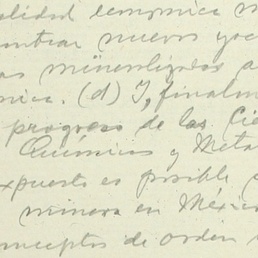 alidad económica m
ontrar nuevos yac
as mineralógicas a
nica. (d) Y, finalm
progreso de las Cie
Químicas y Meta
xpuesto es posible
minera en Méxic
onceptos de orden